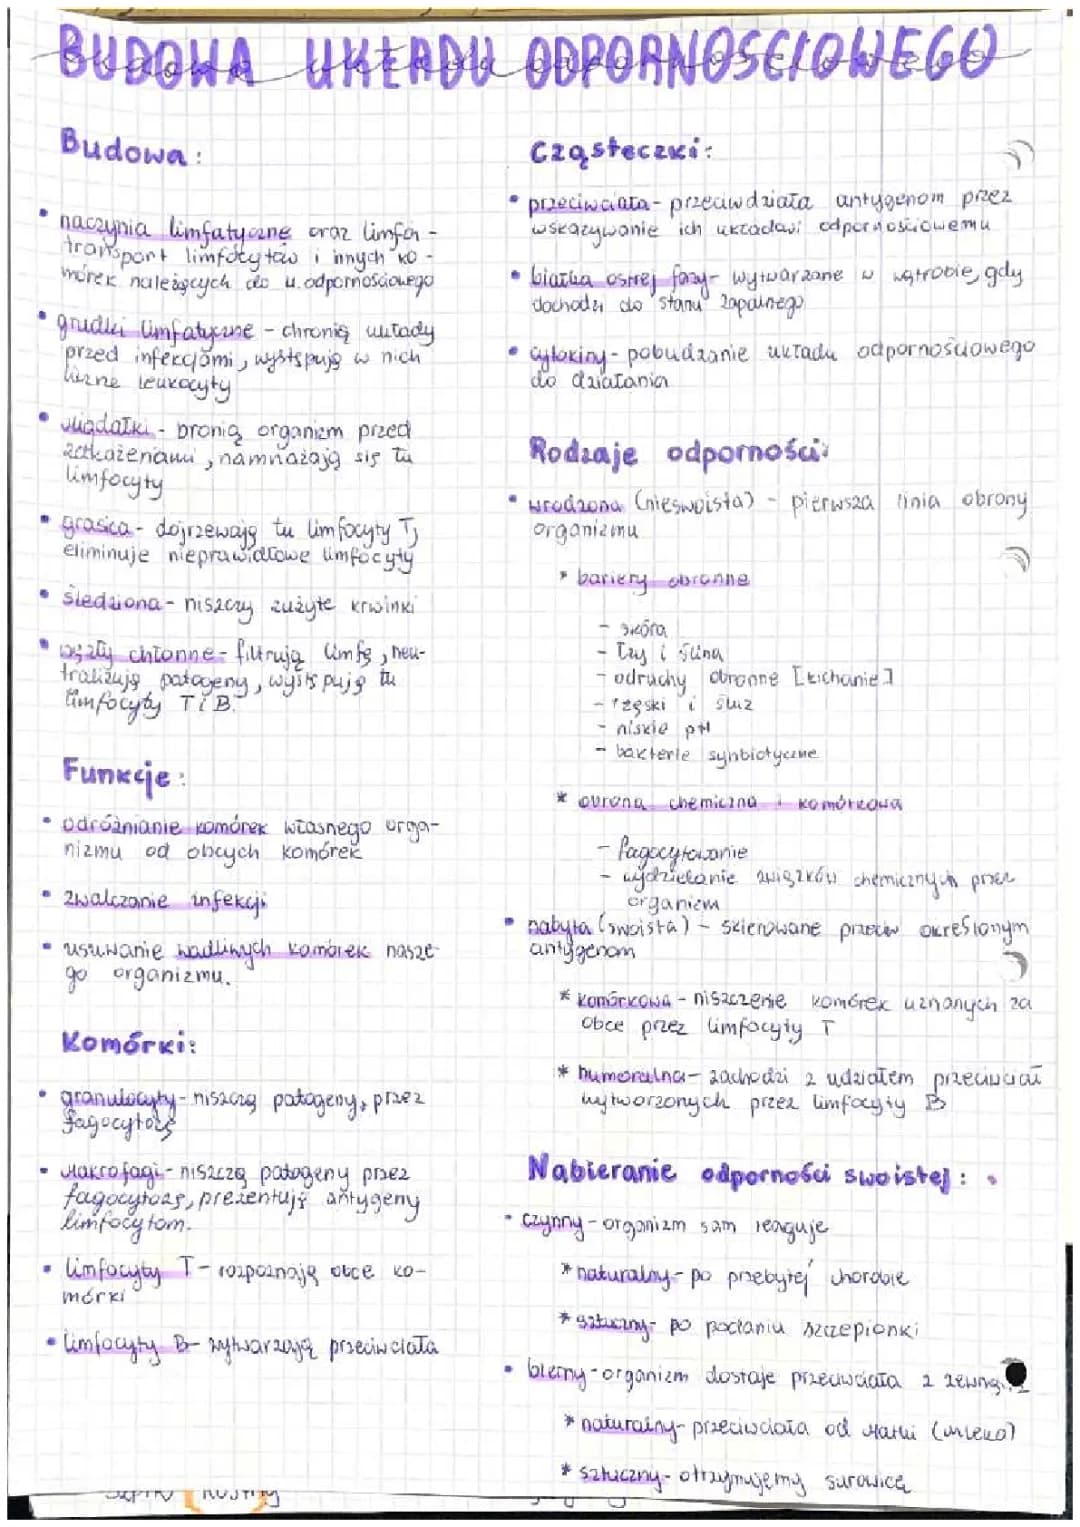 BUDOWA UKŁADU ODPORNOŚCIOWEGO
Budowa:
• naczynia limfatyczne oraz limfa -
transport limfocytów i innych ko-
mórek należących do u. odpornościowego
• grudki limfatyczne - chronią układy
przed infekcjami, występują w nich
liczne leukocyty
• migdałki - bronią organizm przed
zakażeniami, namnażają się tu
limfocyty
• grasica - dojrzewają tu limfocyty T,
eliminuje nieprawidłowe limfocyty
• śledziona - niszczy zużyte krwinki
• węzły chłonne - filtrują limfę, neu-
tralizują patogeny, występują tu
limfocyty T i B.
Funkcje:
• odróżnianie komórek własnego orga-
nizmu od obcych komórek
• zwalczanie infekcji
• usuwanie wadliwych komórek nasze-
go organizmu.
Komórki:
• granulocyty - niszczą patogeny, przez
fagocytozę
• makrofagi - niszczą patogeny przez
fagocytozę, prezentują antygeny
limfocytom.
• limfocyty T - rozpoznają obce ko-
mórki
• limfocyty B - wytwarzają przeciwciała
Cząsteczki:
• przeciwciała - przeciwdziała antygenom przez
wskazywanie ich układowi odpornościowemu
• białka ostrej fazy - wytwarzane w wątrobie, gdy
dochodzi do stanu zapalnego
• cytokiny - pobudzanie układu odpornościowego
do działania
Rodzaje odporności:
• wrodzona (nieswoista) - pierwsza linia obrony
organizmu
* bariery obronne
- skóra
- łzy i ślina
- odruchy obronne [kichanie]
- rzęski i śluz
- niskie pH
- bakterie synbiotyczne
* obrona chemiczna i komórkowa
- fagocytowanie
- wydzielanie związków chemicznych przez
organizm
• nabyta (swoista) - skierowane przeciw określonym
antygenom
* komórkowa - niszczenie komórek uznanych za
obce przez limfocyty T
* humoralna - zachodzi z udziałem przeciwciał
wytworzonych przez limfocyty B
Nabieranie odporności swoistej:
• czynny - organizm sam reaguje
* naturalny - po przebytej chorobie
* sztuczny - po podaniu szczepionki
• bierny - organizm dostaje przeciwciała z
* naturalny - przeciwciała od matki (mleko)
* sztuczny - otrzymujemy surowicę